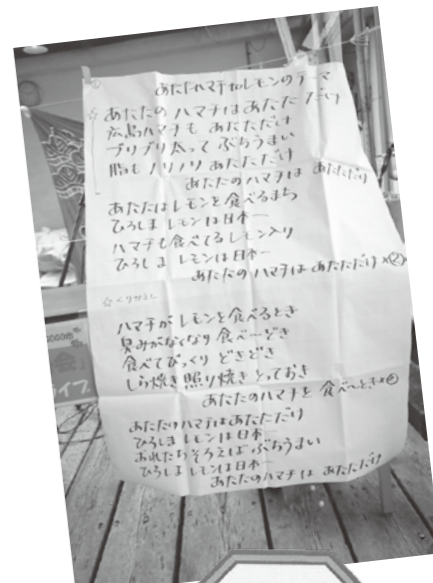 あたたハマチtoレモンのテーマ
☆ あたたの ハマチはあたた だけ
広島ハマチも あたただけ
ブリブリ太って ぶちうまい
脂もノリノリ あたただけ
あたたのハマチは あたただけ
あたたはレモンを食べるまち
ひろしまレモンは日本一
ハマチも食べてるレモン入り
ひろしまレモンは日本一
あたたのハマチは あたただけ×②
☆くりかえし
ハマチがレモンを食べるとき
臭みがなくなり 食べ〜どき
食べてびっくり どきどき
しら焼き 照り焼き とっておき
あたたのハマチを 食べ〜とき×②
あたたのハマチはあたただけ
ひろしまレモンは日本一
おれたちそろえば ぶちうまい
ひろしまレモンは日本一
あたたのハマチは あたただけ
ライブ